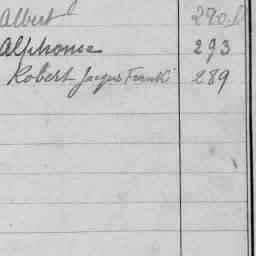 Albert 290
Alphonse 293
Robert Jacques 289